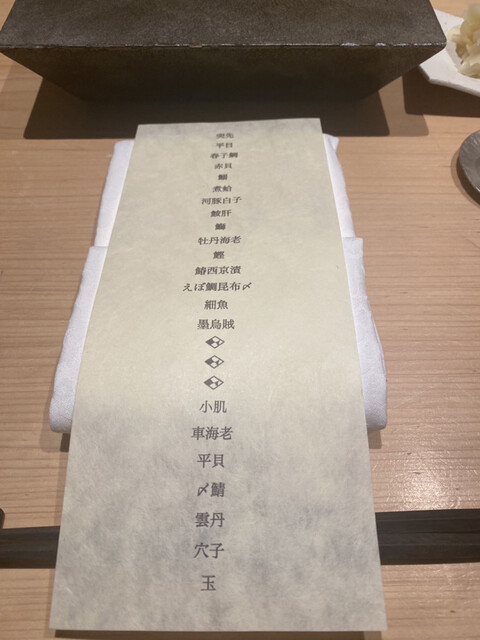 突先
平目
春子鯛
赤貝
煮蛤
河豚白子
鮟肝
鰤
牡丹海老
鰹
鰆西京漬
えぼ鯛昆布〆
細魚
墨烏賊
小肌
車海老
平貝
〆鯖
雲丹
穴子
玉